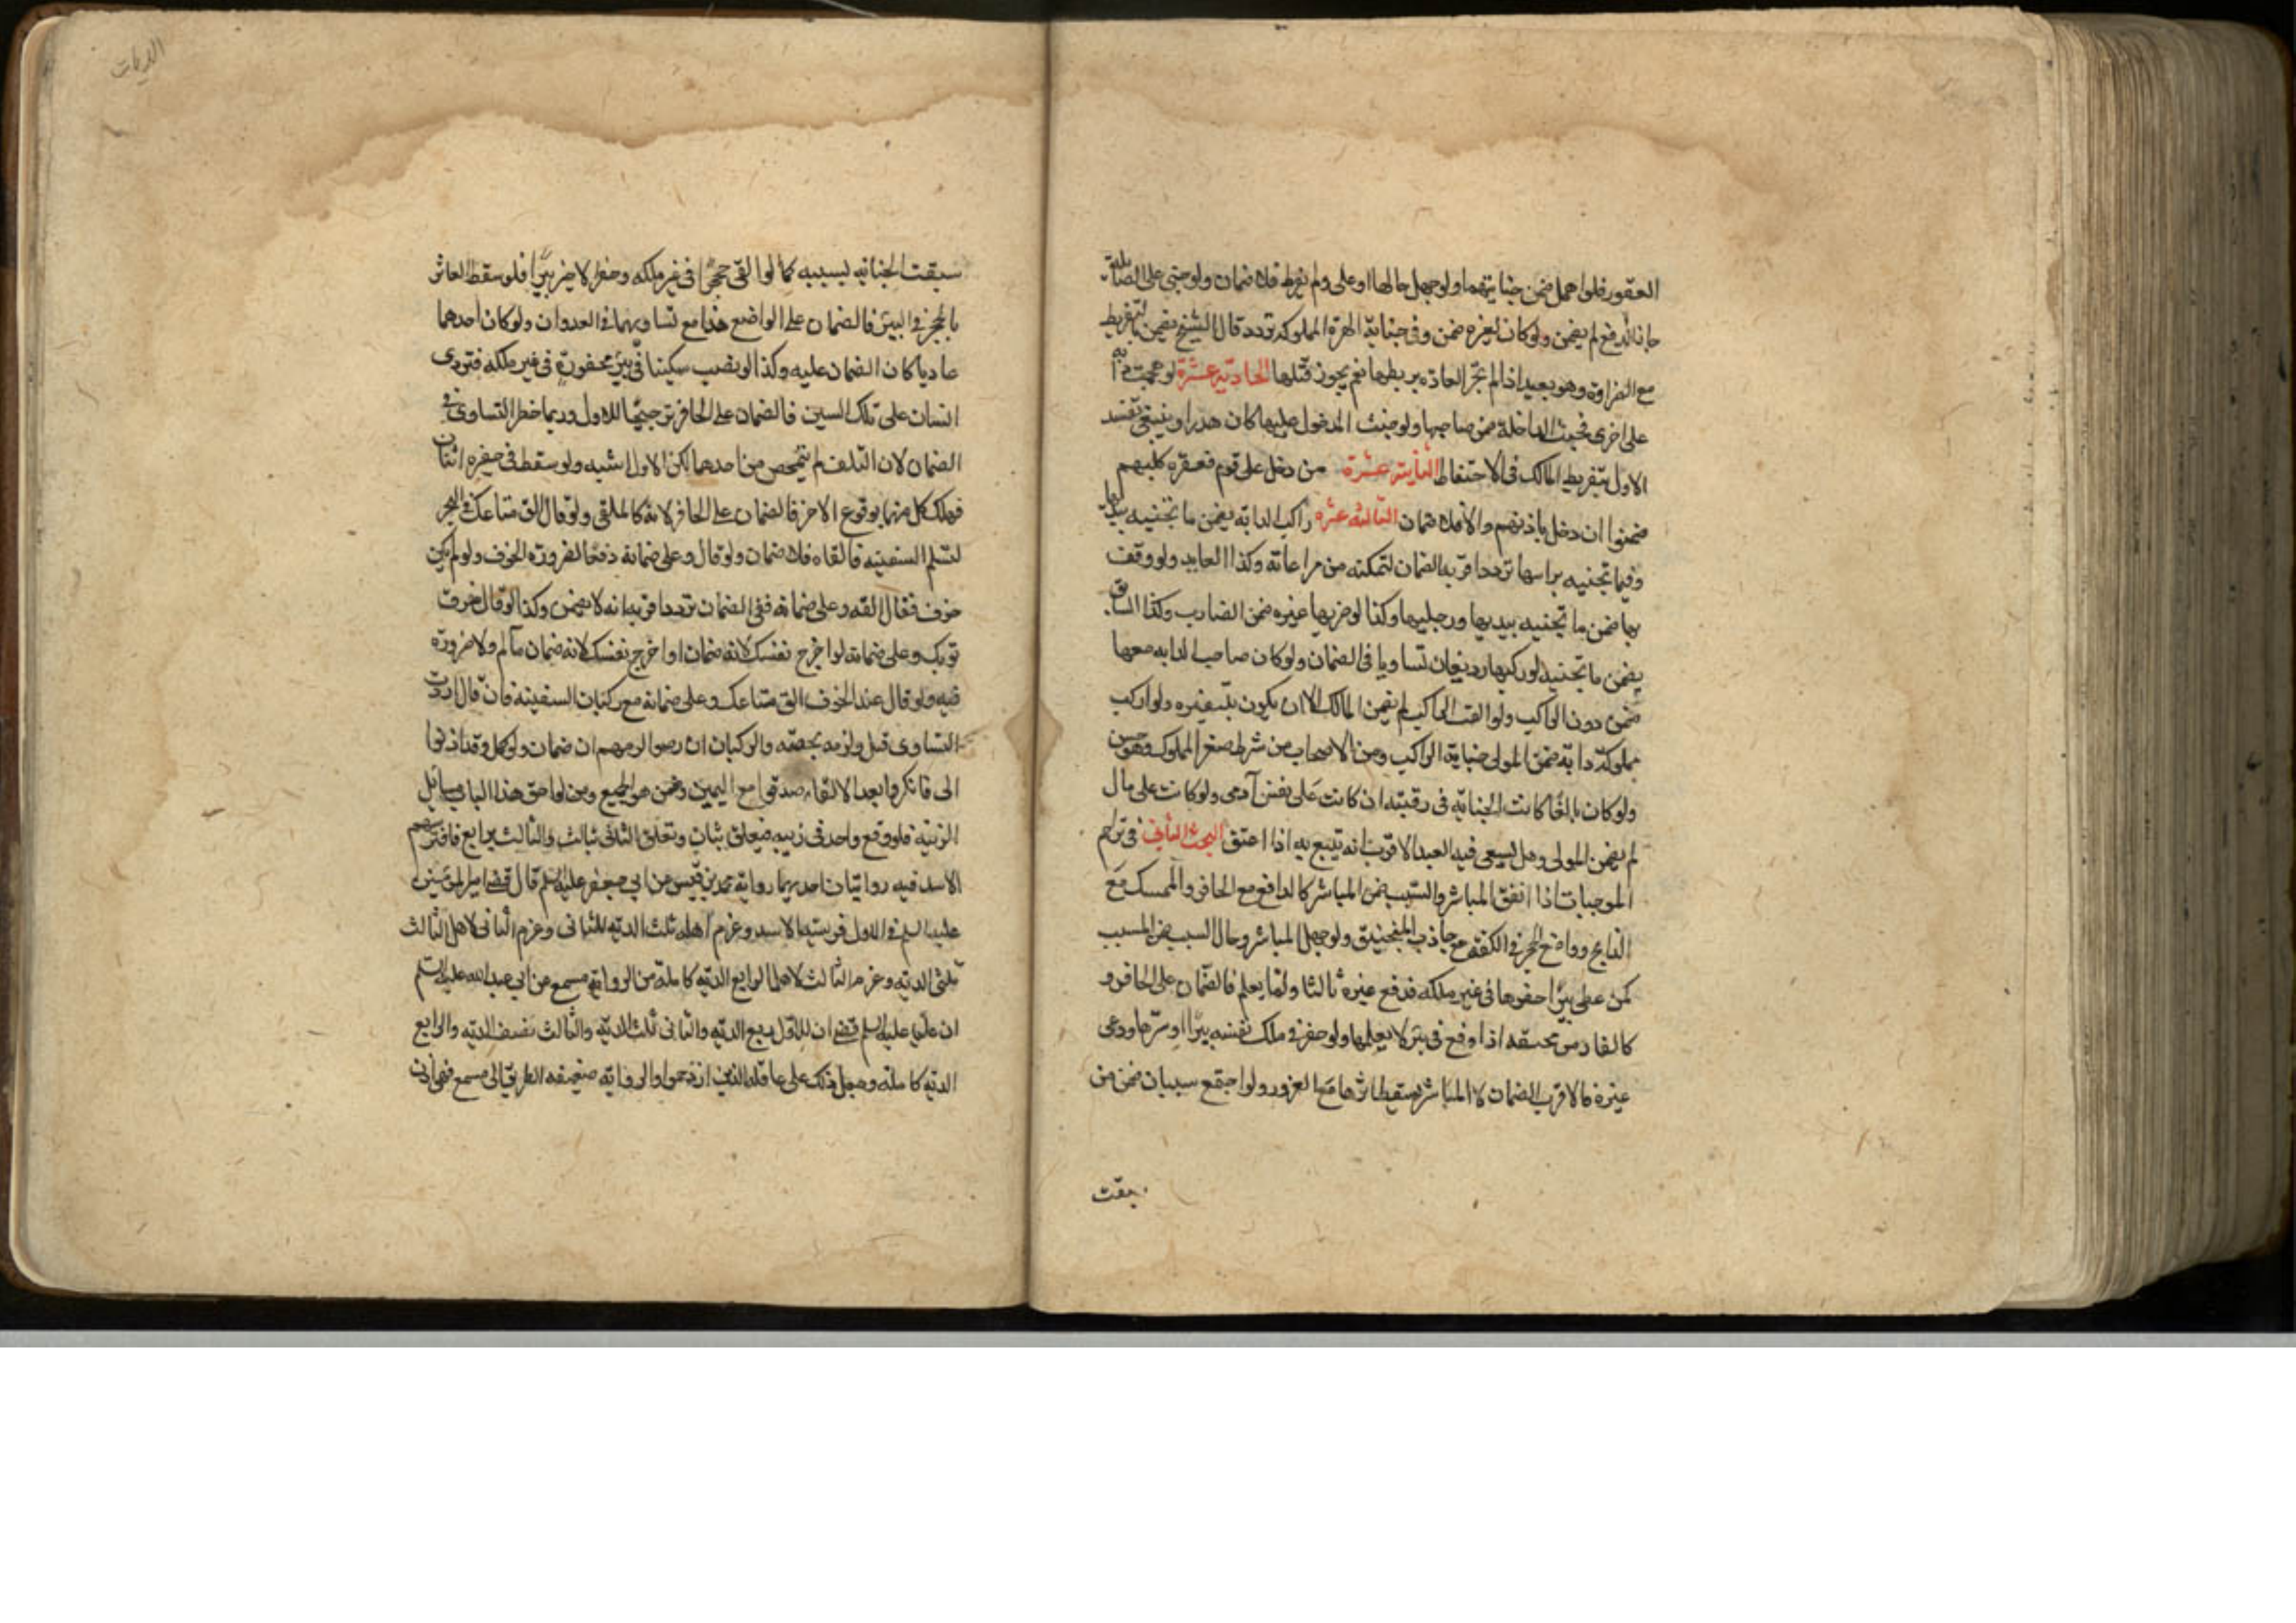 العقور فلو اهمل ضمن جنايتهما ولو جهل حالها او علم ولم يفرط فلا ضمان ولو جنى على الصائلة
جان للدفع لم يضمن ولو كان لغيره ضمن وفي جناية الهرة المملوكة تردد قال الشيخ يضمن بالتفريط
مع الضراوة وهو بعيد اذ لم تجر العادة بربطها نعم يجوز قتلها الحادية عشرة لو هجمت دابة
على اخرى فجنت الداخلة ضمن صاحبها ولو جنت المدخول عليها كان هدرا وينبغي تقييد
الاول بتفريط المالك في الاحتفاظ الثانية عشرة من دخل على قوم فعقره كلبهم
ضمنوا ان دخل باذنهم والا فلا ضمان الثالثة عشره راكب الدابة يضمن ما تجنيه بيديها
وفيما تجنيه براسها تردد اقربه الضمان لتمكنه من مراعاته وكذا القايد ولو وقف
بها ضمن ما تجنيه بيديها ورجليها وكذا لو ضربها غيره ضمن الضارب وكذا السائق
يضمن ما تجنيه لو ركبها رديفان تساويا في الضمان ولو كان صاحب الدابه معها
ضمن دون الراكب ولو القت الراكب لم يضمن المالك الا ان يكون بتنفيره ولو اركب
مملوكه دابة ضمن المولى جناية الراكب ومن الاصحاب من شرط صغر المملوك وهو حسن
ولو كان بالغا كانت الجناية في رقبته ان كانت على نفس آدمي ولو كانت على مال
لم يضمن المولى وهل يسعى فيه العبد الاقرب انه يتبع به اذا اعتق البحث الثاني في تزاحم
الموجبات اذا اتفق المباشر والسبب ضمن المباشر كالدافع مع الحافر والممسك مع
الذابح وواضع الحجر في الكفة مع جاذب المنجنيق ولو جهل المباشر وحال السبب ضمن المسبب
كمن غطى بئرا حفرها في غير ملكه فدفع غيره ثالثا ولما يعلم فالضمان على الحافر و
كالفار من مخيفه اذا وقع في بئر لا يعلمها ولو حفر في ملك نفسه بئرا وسترها ودعى
غيره فالاقرب الضمان لان المباشر يسقط اثرها مع الغرور ولو اجتمع سببان ضمن من
سبقت
الديات
سبقت الجناية بسببه كما لو القى حجرا في غير ملكه وحفر الاخر بئرا فلو سقط العاثر
بالحجر في البئر فالضمان على الواضع هذا مع تساويهما في العدوان ولو كان احدهما
عاديا كان الضمان عليه وكذا لو نصب سكينا في بئر محفورة في غير ملكه فتردى
انسان على تلك السكين فالضمان على الحافر ترجيحا للاول وربما خطر التساوي في
الضمان لان التلف لم يتمحض من احدهما لكن الاول اشبه ولو سقط في حفيره اثنان
فهلك كل منهما بوقوع الاخر فالضمان على الحافر لانه كالملقي ولو قال الق متاعك في البحر
لتسلم السفينه فالقاه فلا ضمان ولو قال وعلي ضمانه ضمن دفعا لضرورة الخوف ولو لم يكن
خوف فقال القه وعلي ضمانه ففي الضمان تردد اقربه انه لا يضمن وكذا لو قال خرق
ثوبك وعلي ضمانه او اجرح نفسك لانه ضمان ما لم يجب ولا ضرورة
فيه ولو قال عند الخوف الق متاعك وعلي ضمانه مع ركبان السفينة فان قال اردت
التساوي قبل ولزمه بحصته والركبان ان رضوا لزمهم ان ضمان ولو قال وقد اذنوا
لي فانكروا بعد الالقاء صدقوا مع اليمين وضمن هو الجميع ومن لواحق هذا الباب مسائل
الزبية فلو وقع واحد في زبيه فتعلق بثان وتعلق الثاني بثالث والثالث برابع فافترسهم
الاسد فيه روايتان احديهما رواية محمد بن قيس عن ابي جعفر عليه السلم قال قضى امير المؤمنين
عليه السلم في الاول فريسة الاسد وغرم اهله ثلث الدية للثاني وغرم الثاني لاهل الثالث
ثلثي الدية وغرم الثالث لاهل الرابع الدية كاملة والرواية مسمع عن ابي عبد الله عليه السلم
ان عليا عليه السلم قضى ان للاول ربع الدية والثاني ثلث الدية والثالث نصف الدية والرابع
الدية كاملة وجعل ذلك على عاقلة الذين ازدحموا والرواية ضعيفه الطريق الى مسمع فهي اذن